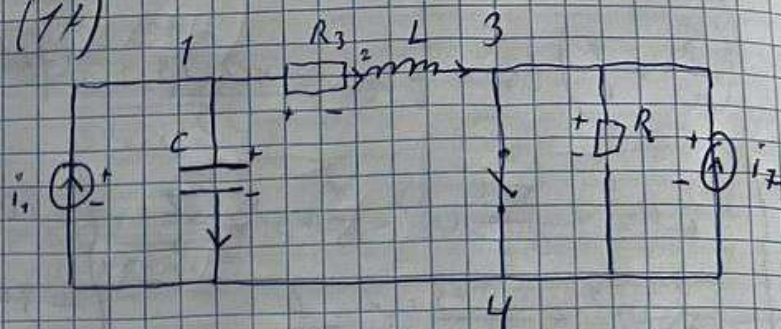 (11)
1 R3 2 L 3
+ -
C + -
i1 + -
+ - R
+ - i7
4